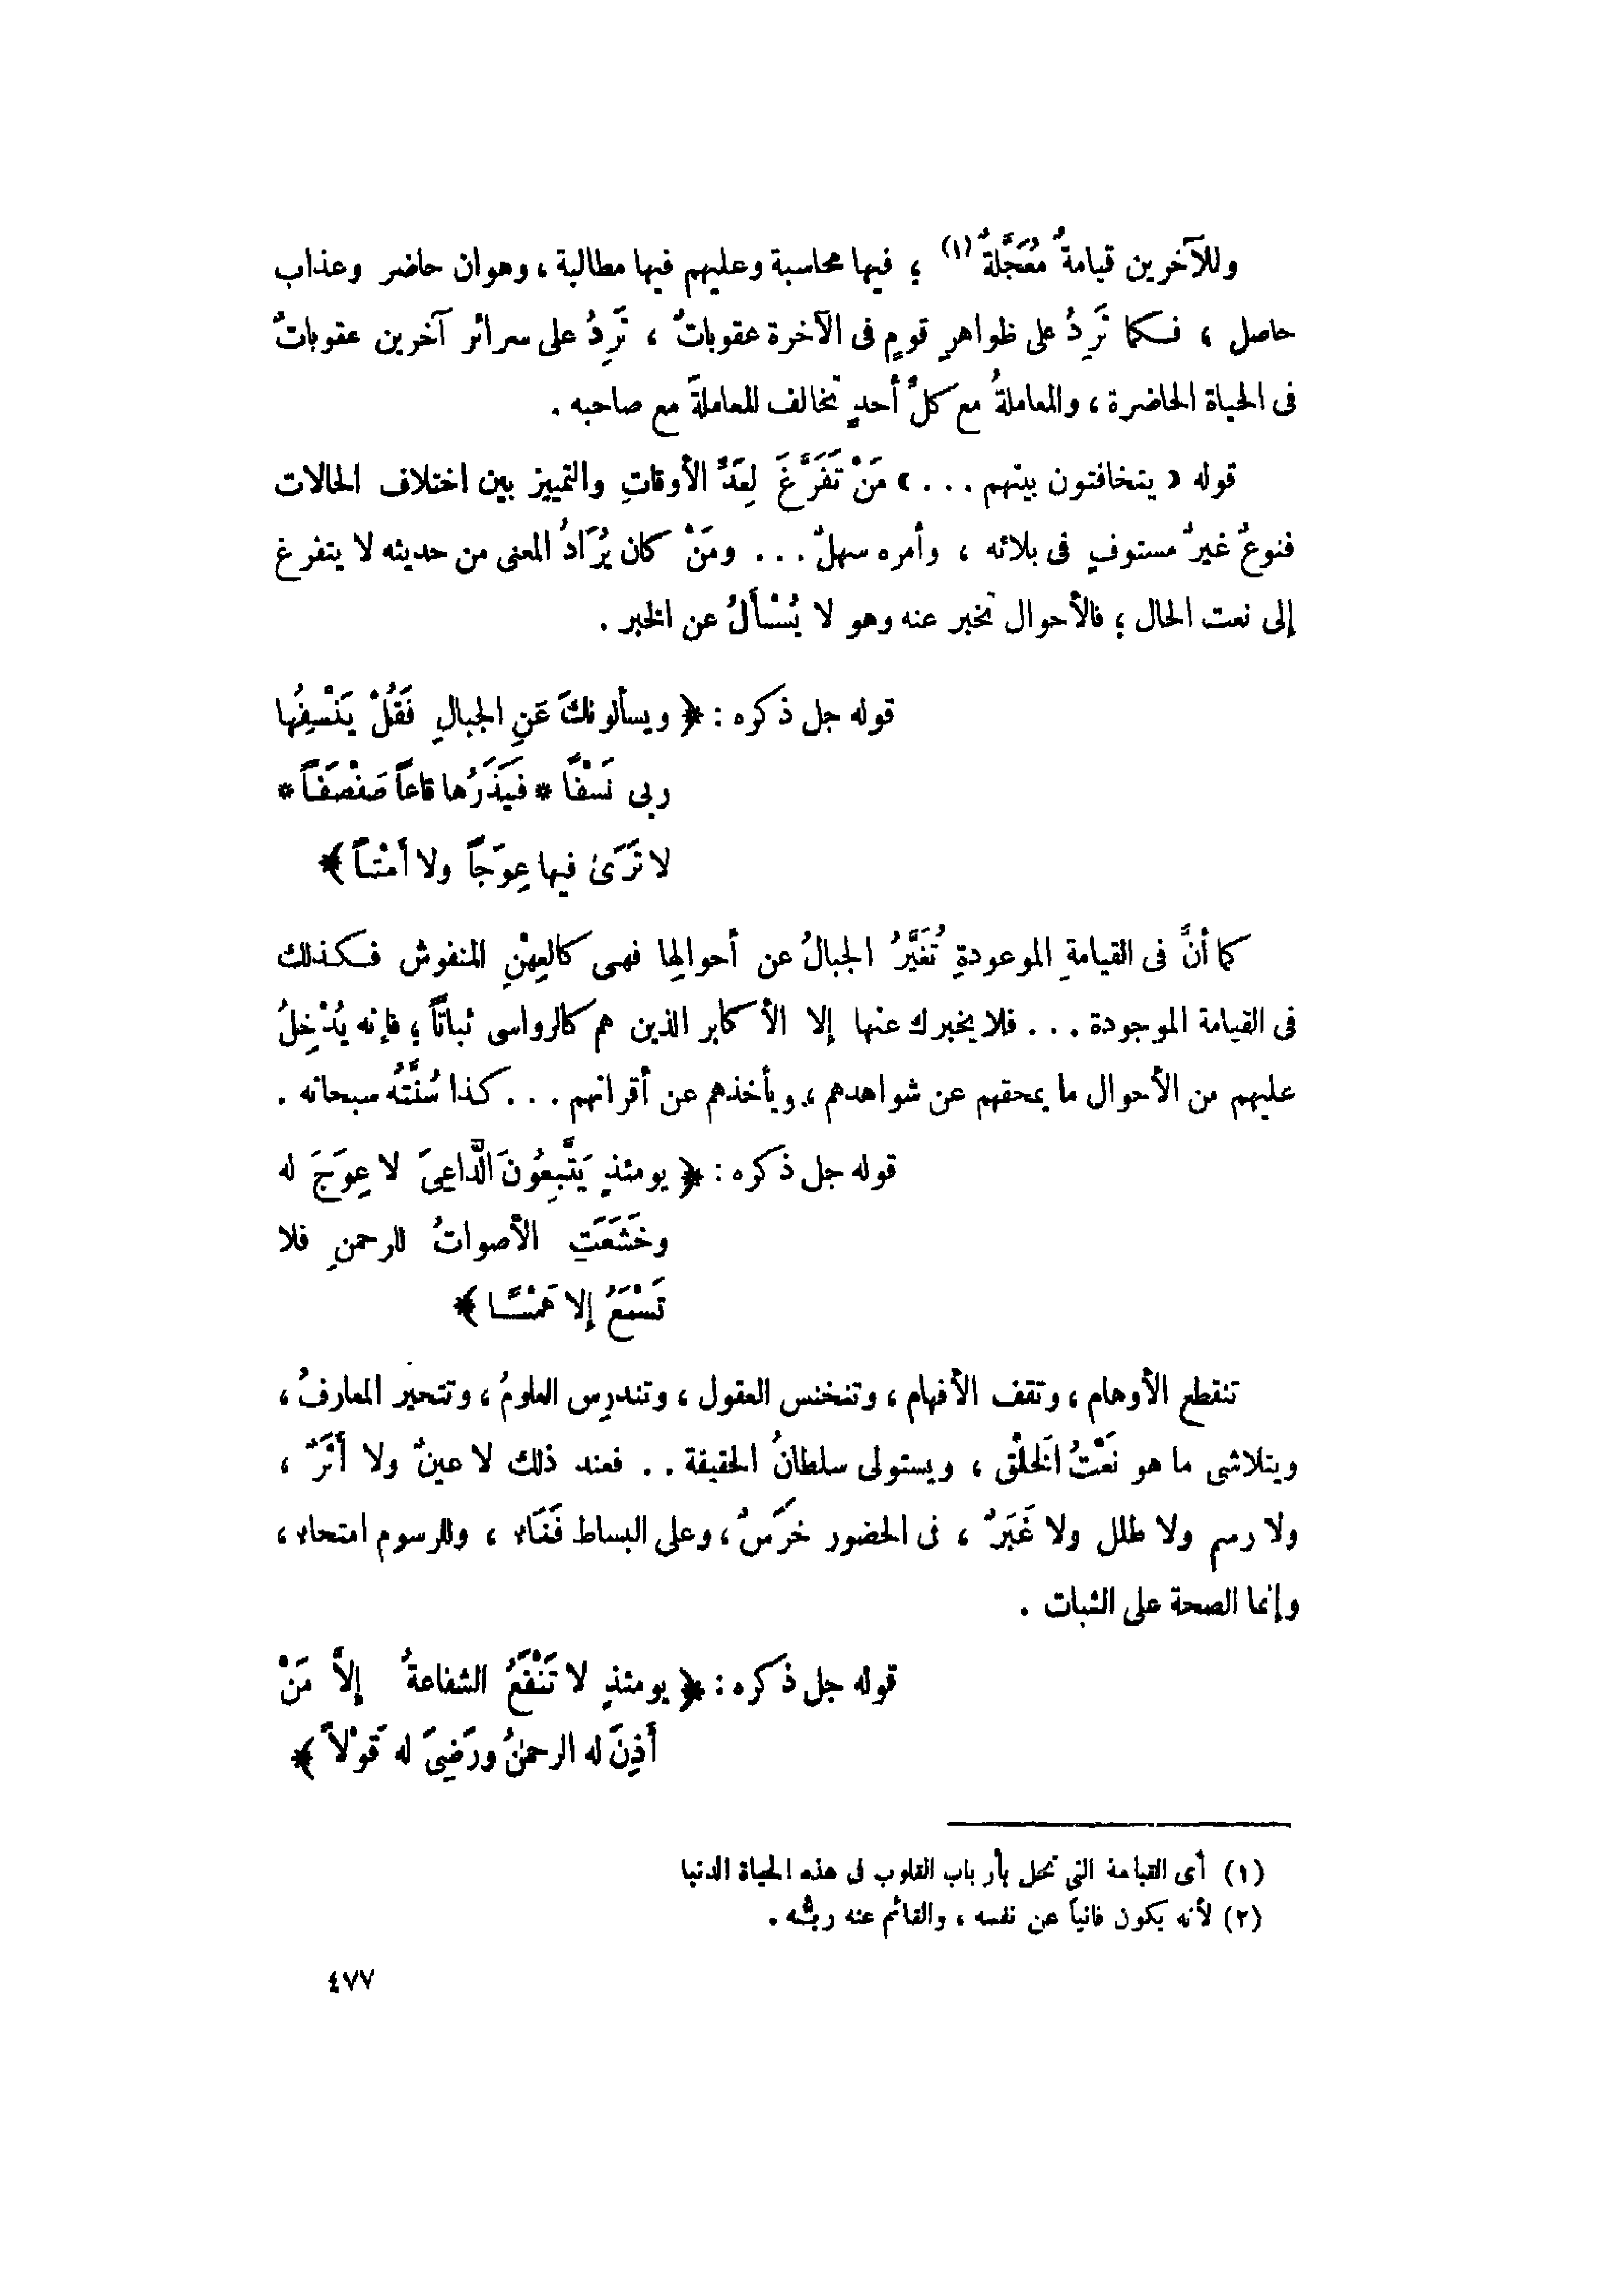 وللآخرين قيامةٌ مُعَجَّلةٌ (١) ؛ فيها محاسبة وعليهم فيها مطالبة ، وهوان حاضر وعذاب
حاصل ، فكما تَرِدُ على ظواهرِ قومٍ فى الآخرة عقوباتٌ ، تَرِدُ على سرائر آخرين عقوباتٌ
فى الحياة الحاضرة ، والمعاملةُ مع كلِّ أحدٍ تخالف المعاملةَ مع صاحبه .
قوله « يتخافتون بينهم . . . » مَنْ تَفَرَّغَ لِعَدِّ الأوقاتِ والتمييز بين اختلاف الحالات
فنوعٌ غيرُ مستوفٍ فى بلائه ، وأمره سهلٌ . . . ومَنْ كان يُرَادُ المعنى من حديثه لا يتفرغ
إلى نعت الحال ؛ فالأحوال تخبر عنه وهو لا يُسْأَلُ عن الخبر .
قوله جل ذكره : ﴿ ويسألونكَ عَنِ الجبالِ فَقُلْ يَنْسِفُها
ربى نَسْفًا * فَيَذَرُها قاعاً صَفْصَفاً *
لا تَرَىٰ فيها عِوَجاً ولا أَمْتاً ﴾
كما أنَّ فى القيامةِ الموعودةِ تُغَيَّرُ الجبالُ عن أحوالِها فهى كالعِهْنِ المنفوش فكذلك
فى القيامة الموجودة . . . فلا يخبرك عنها إلا الأكابر الذين هم كالرواسى ثباتاً ؛ فإنه يُدْخِلُ
عليهم من الأحوال ما يمحقهم عن شواهدهم ، ويأخذهم عن أقرانهم . . . كذا سُنَّتُه سبحانه .
قوله جل ذكره : ﴿ يومئذٍ يَتَّبِعُونَ الَّداعِىَ لا عِوَجَ له
وخَشَعَتِ الأصواتُ للرحمنِ فلا
تَسْمَعُ إلا هَمْسًا ﴾
تنقطع الأوهام ، وتقف الأفهام ، وتنخنس العقول ، وتندرِس العلومُ ، وتتحير المعارفُ ،
ويتلاشى ما هو نَعْتُ الخَلْق ، ويستولى سلطانُ الحقيقة . . فعند ذلك لا عينٌ ولا أَثَرٌ ،
ولا رسم ولا طلل ولا غَبَرٌ ، فى الحضور خَرَسٌ ، وعلى البساط فَنَاء ، وللرسوم امتحاء ،
وإنما الصحة على الثبات .
قوله جل ذكره : ﴿ يومئذٍ لا تَنْفَعُ الشفاعةُ إلاَّ مَنْ
أَذِنَ له الرحمنُ ورَضِىَ له قَوْلاً ﴾
(١) أى القيامة التى تحل بأرباب القلوب فى هذه الحياة الدنيا
(٢) لأنه يكون فانياً عن نفسه ، والقائم عنه ربُّه .
٤٧٧